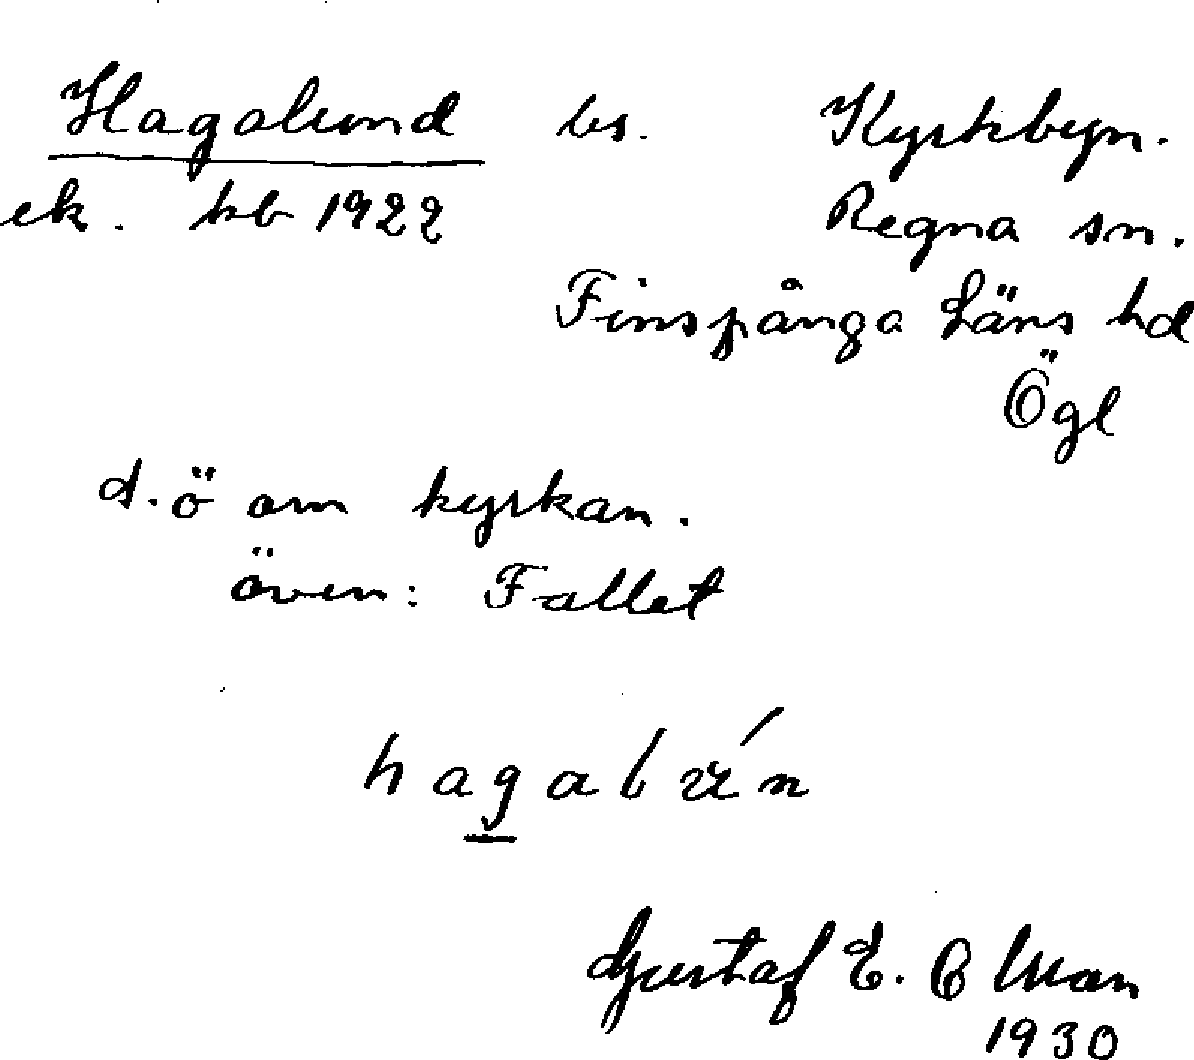 Hagalund bs. Kyrkbyn.
ek. kb 1922 Regna sn.
Finspånga Läns hd
Ögl
d. ö om kyrkan.
även: Fallet
Gustaf E. C
1930